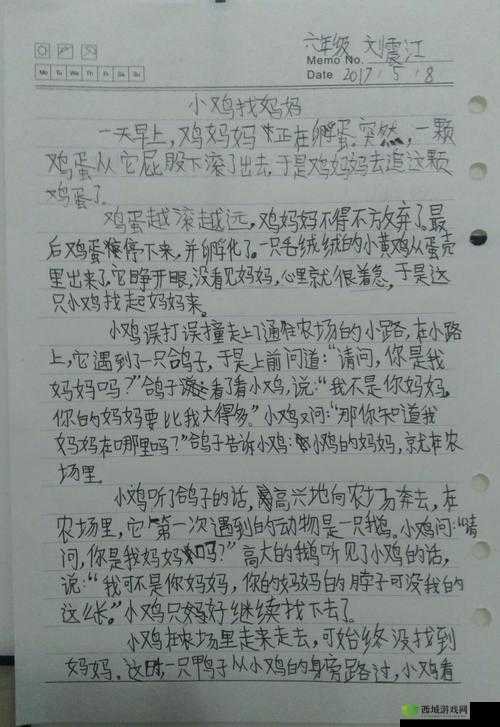 六年级 刘震江
Memo No.
Mo Tu We Th Fr Sa Su
Date 2017.5.8
小鸡找妈妈
一天早上，鸡妈妈正在孵蛋。突然，一颗
鸡蛋从它屁股下滚了出去，于是鸡妈妈去追这颗
鸡蛋了。
鸡蛋越滚越远，鸡妈妈不得不放弃了。最
后鸡蛋停下来，并孵化了。一只毛绒绒的小黄鸡从蛋壳
里出来了，它睁开眼，没看见妈妈，心里就很着急，于是这
只小鸡找起妈妈来。
小鸡误打误撞走上了通往农场的小路，在小路
上，它遇到了一只鸽子，于是上前问道：“请问，你是我
妈妈吗？”鸽子看了看小鸡，说：“我不是你妈妈。
你的妈妈要比我大得多。”小鸡又问：“那你知道我
妈妈在哪里吗？”鸽子告诉小鸡：小鸡的妈妈，就在农
场里。
小鸡听了鸽子的话，高兴地向农场奔去，在
农场里，它第一次遇到的动物是一只鹅。小鸡问：“请
问，你是我妈妈吗？”高大的鹅听见了小鸡的话，
说：“我可不是你妈妈，你的妈妈的脖子可没我的
这么长。”小鸡只好继续找下去了。
小鸡在农场里走来走去，可始终没找到
妈妈。这时，一只鸭子从小鸡的身旁路过，小鸡看
西城游戏网